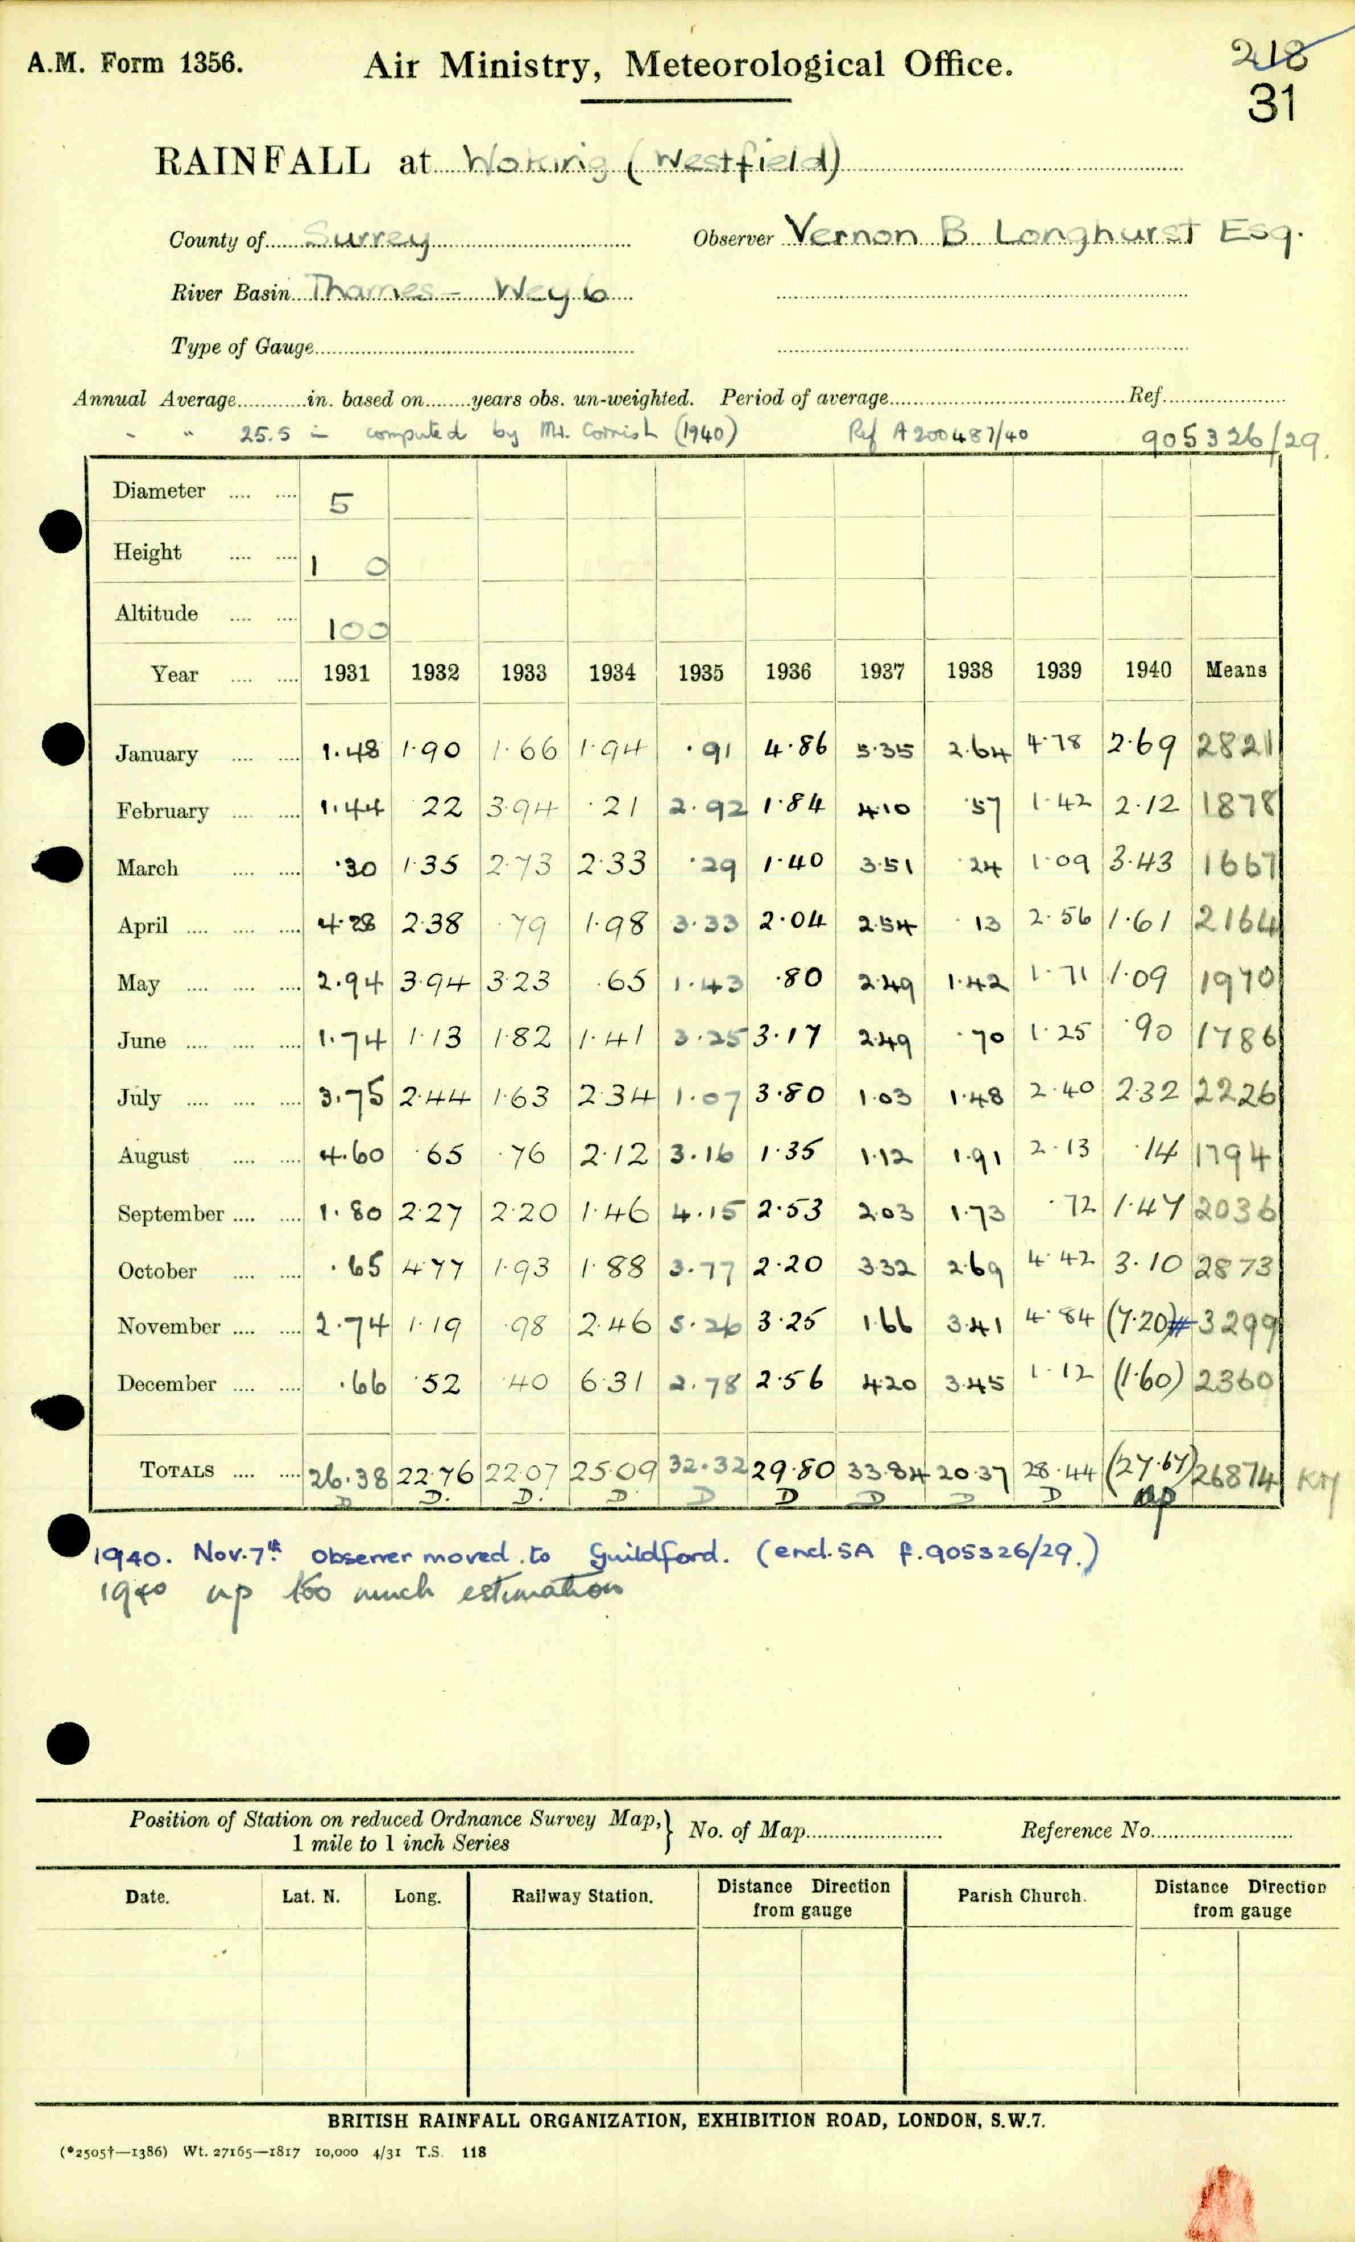 A.M. Form 1356.
Air Ministry, Meteorological Office.
218
31
RAINFALL at Woking (Westfield)
County of Surrey Observer Vernon B Longhurst Esq.
River Basin Thames - Wey 6
Type of Gauge
Annual Average in. based on years obs. un-weighted. Period of average Ref.
- " 25.5 in computed by Mr. Cornish (1940) Ref A200487/40 905326/29.
Diameter .... .... 5
Height .... .... 1 0
Altitude .... .... 100
Year .... .... 1931 1932 1933 1934 1935 1936 1937 1938 1939 1940 Means
January .... .... 1.48 1.90 1.66 1.94 .91 4.86 5.35 2.64 4.78 2.69 2821
February .... .... 1.44 .22 3.94 .21 2.92 1.84 4.10 .57 1.42 2.12 1878
March .... .... .30 1.35 2.73 2.33 .29 1.40 3.51 .24 1.09 3.43 1667
April .... .... .... 4.28 2.38 .79 1.98 3.33 2.04 2.54 .13 2.56 1.61 2164
May .... .... .... 2.94 3.94 3.23 .65 1.43 .80 2.49 1.42 1.71 1.09 1970
June .... .... .... 1.74 1.13 1.82 1.41 3.25 3.17 2.49 .70 1.25 .90 1786
July .... .... .... 3.75 2.44 1.63 2.34 1.07 3.80 1.03 1.48 2.40 2.32 2226
August .... .... 4.60 .65 .76 2.12 3.16 1.35 1.12 1.91 2.13 .14 1794
September .... .... 1.80 2.27 2.20 1.46 4.15 2.53 2.03 1.73 .72 1.47 2036
October .... .... .65 4.77 1.93 1.88 3.77 2.20 3.32 2.69 4.42 3.10 2873
November .... .... 2.74 1.19 .98 2.46 5.26 3.25 1.66 3.41 4.84 (7.20)# 3299
December .... .... .66 .52 .40 6.31 2.78 2.56 4.20 3.45 1.12 (1.60) 2360
TOTALS .... .... 26.38 22.76 22.07 25.09 32.32 29.80 33.84 20.37 28.44 (27.67) 26874
D D. D. D D D D D D np
1940. Nov. 7th observer moved to Guildford. (encl. 5A f. 905326/29.)
1940 np too much estimation
Position of Station on reduced Ordnance Survey Map,} No. of Map Reference No.
1 mile to 1 inch Series
Date. Lat. N. Long. Railway Station. Distance Direction from gauge Parish Church. Distance Direction from gauge
BRITISH RAINFALL ORGANIZATION, EXHIBITION ROAD, LONDON, S.W.7.
(*2505†—1386) Wt. 27165—1817 10,000 4/31 T.S. 118